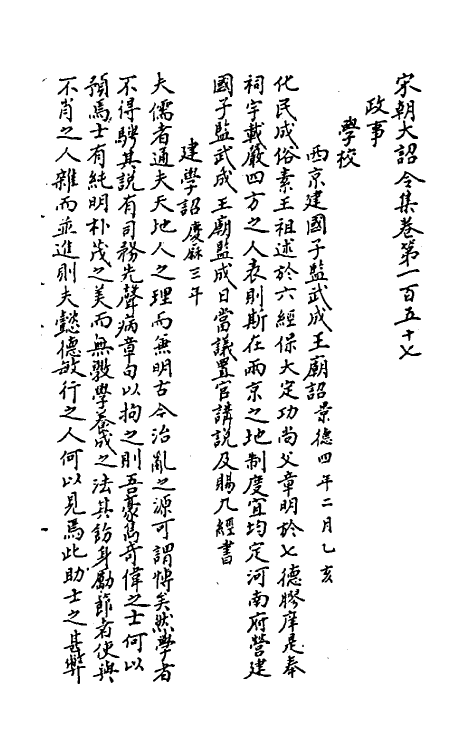 宋朝大詔令集卷第一百五十七
政事
學校
西京建國子監武成王廟詔景德四年二月乙亥
化民成俗素王祖述於六經保大定功尚父章明於七德膠庠是奉
祠宇載嚴四方之人表則斯在兩京之地制度宜均定河南府營建
國子監武成王廟監成日當議置官講説及賜九經書
建學詔慶厤三年
夫儒者通夫天地人之理而兼明古今治亂之源可謂博矣然學者
不得騁其説有司務先聲病章句以拘之則吾豪雋奇偉之士何以
預焉士有純明朴茂之美而無斅學養成之法其飭身勵節者使與
不肖之人雜而並進則夫懿德敏行之人何以見焉此助士之甚弊